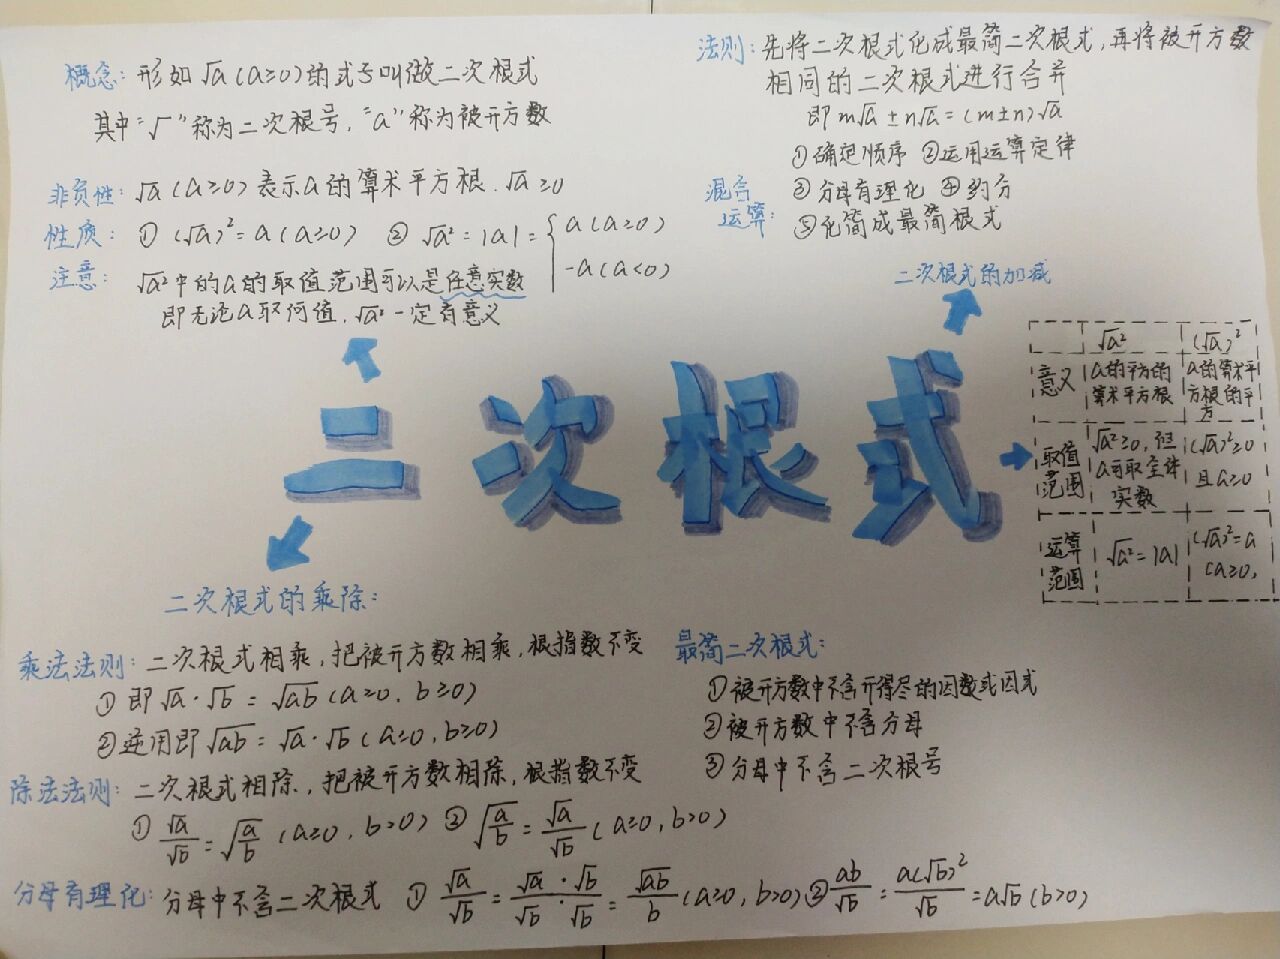 概念: 形如√a (a≥0)的式子叫做二次根式
其中"√"称为二次根号, "a"称为被开方数
非负性: √a (a≥0) 表示a的算术平方根. √a ≥0
性质: ① (√a)²=a (a≥0) ② √a² = |a| = { a (a≥0)
-a (a<0)
注意: √a²中的a的取值范围可以是任意实数
即无论a取何值, √a²一定有意义
法则: 先将二次根式化成最简二次根式, 再将被开方数
相同的二次根式进行合并
即 m√a ± n√a = (m±n)√a
混合运算: ①确定顺序 ②运用运算定律
③分母有理化 ④约分
⑤化简成最简根式
二次根式的加减
二次根式
√a² (√a)²
意义 a的平方的算术平方根 a的算术平方根的平方
取值范围 √a²≥0, 但a可取全体实数 (√a)²≥0且a≥0
运算范围 √a²=|a| (√a)²=a (a≥0,
二次根式的乘除:
乘法法则: 二次根式相乘, 把被开方数相乘, 根指数不变
①即√a·√b = √ab (a≥0, b≥0)
②逆用即√ab = √a·√b (a≥0, b≥0)
除法法则: 二次根式相除, 把被开方数相除, 根指数不变
① √a/√b = √(a/b) (a≥0, b>0) ② √(a/b) = √a/√b (a≥0, b>0)
最简二次根式:
①被开方数中不含开得尽的因数或因式
②被开方数中不含分母
③分母中不含二次根号
分母有理化: 分母中不含二次根式 ① √a/√b = √a·√b/√b·√b = √ab/b (a≥0, b>0) ② ab/√b = a(√b)²/√b = a√b (b>0)